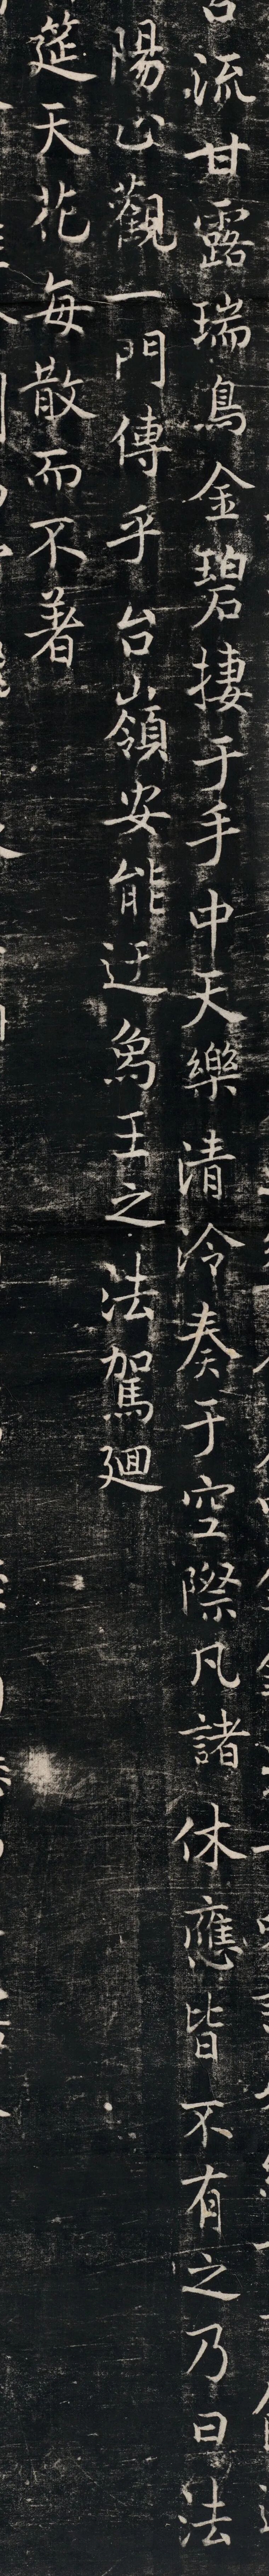 流甘露瑞鳥金碧摟于手中天樂清泠奏于空際凡諸休應皆不有之乃曰法
陽山觀一門傳乎台山領安能迂象王之法駕廻
筵天花每散而不着